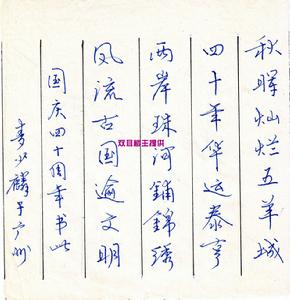 秋晖灿烂五羊城
四十年华运泰亨
两岸珠河铺锦绣
风流古国遍文明
国庆四十周年书此
麦少麟于广州
双目明王提供